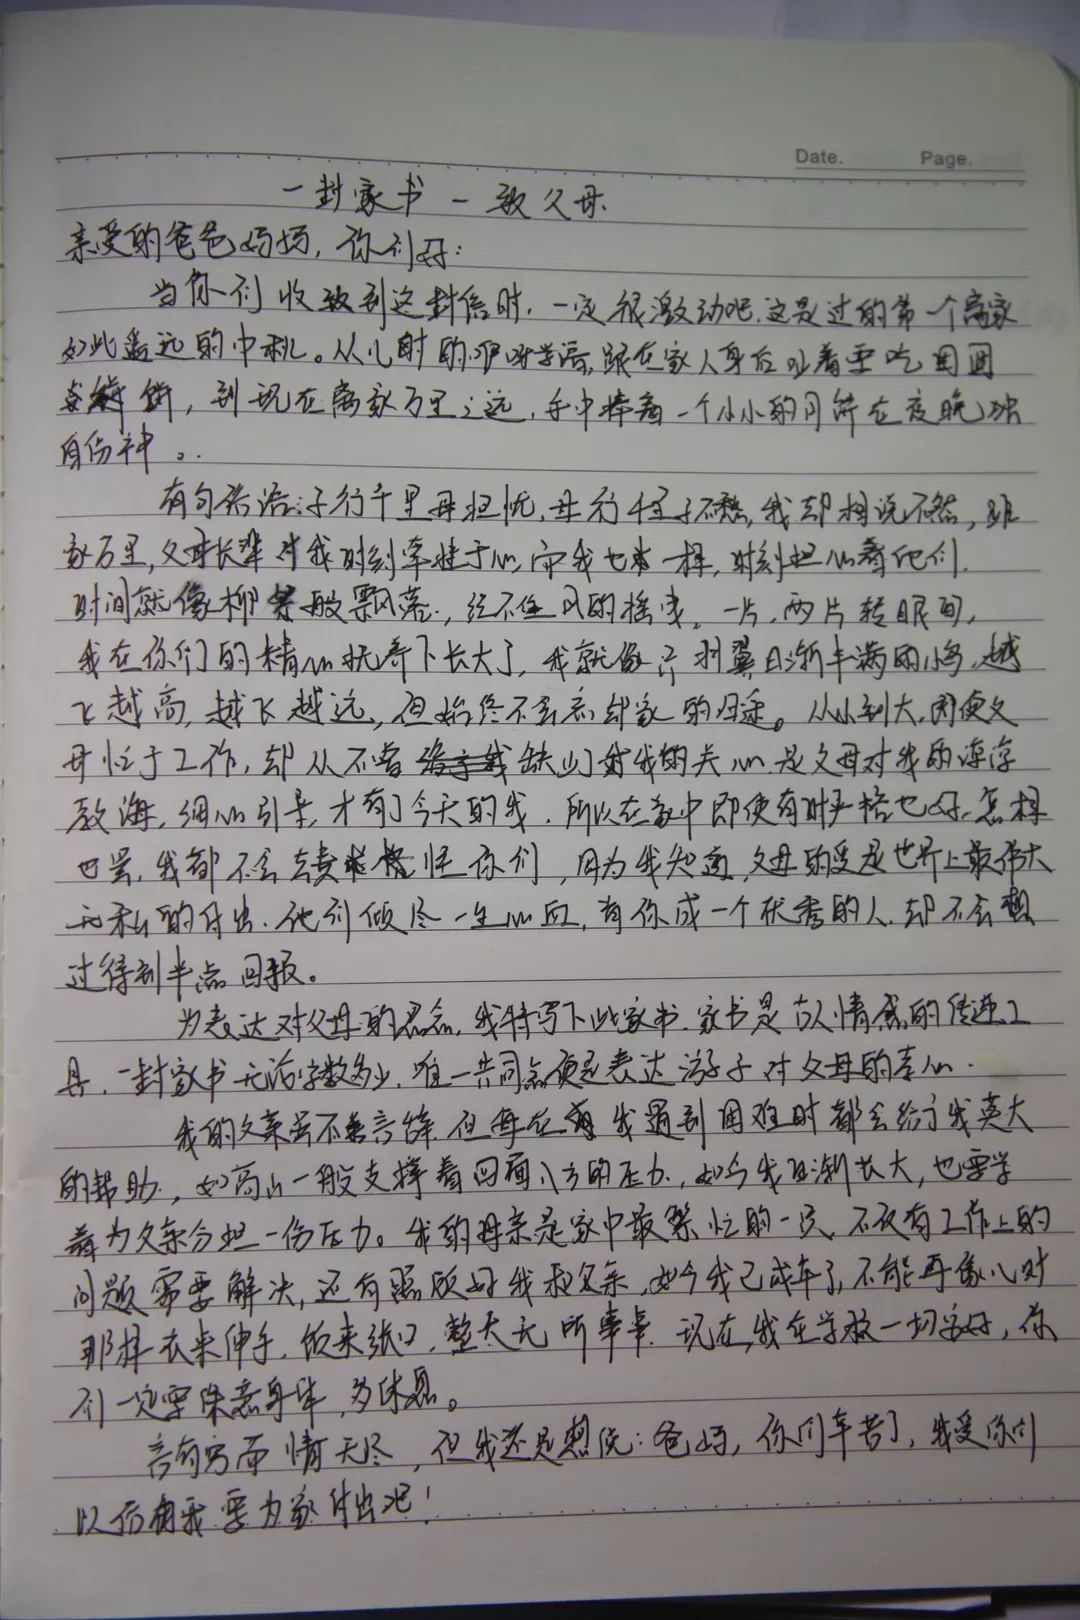 Date. Page.
一封家书 — 致父母
亲爱的爸爸妈妈，你们好：
当你们收到这封信时，一定很激动吧，这是过的第一个离家
如此遥远的中秋。从儿时的咿呀学语，跟在家人身后叫着要吃团圆
饼，到现在离家万里之远，手中捧着一个小小的月饼在夜晚独
自伤神。
有句俗语：子行千里母担忧，母行千里子不愁，我却想说不然，距
家万里，父母长辈对我时刻牵挂于心，而我也一样，时刻担心着他们。
时间就像柳絮般飘落，经不住风的摇曳，一片，两片转眼间，
我在你们的精心抚养下长大了，我就像只羽翼日渐丰满的小鸟，越
飞越高，越飞越远，但始终不会忘却家的归途。从小到大，因便父
母忙于工作，却从不曾缺少对我的关心，是父母对我的谆谆
教海，细心引导，才有了今天的我，所以在家中即使有时严格也好，怎样
也罢，我都不会去责怪你们，因为我知道，父母的爱是世界上最伟大
无私的付出，他们倾尽一生心血，育你成一个优秀的人，却不会想
过得到半点回报。
为表达对父母的思念，我特写下此家书，家书是古人情感的传递工
具，一封家书无论字数多少，唯一共同点便是表达游子对父母的孝心。
我的父亲虽不善言辞，但每在我遇到困难时都会给予我莫大
的帮助，如高山一般支撑着四面八方的压力，如今我日渐长大，也需学
着为父亲分担一份压力。我的母亲是家中最繁忙的一员，不仅有工作上的
问题需要解决，还有照顾好我和父亲，如今我已成年了，不能再像儿时
那样衣来伸手，饭来张口，整天无所事事，现在，我在学校一切安好，你
们一定要保意身体，多休息。
言有穷而情无尽，但我还是想说：爸妈，你们辛苦了，我爱你们
以后由我要为家付出吧！